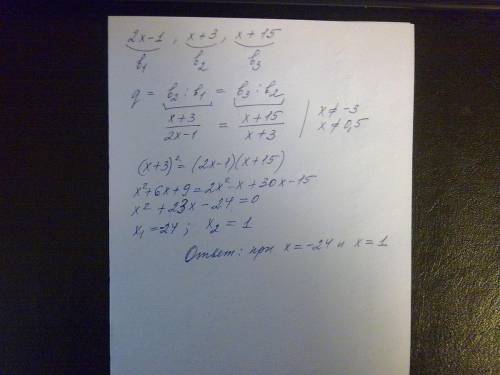 2x-1, x+3, x+15
b₁ b₂ b₃
q = b₂:b₁ = b₃:b₂
(x+3)/(2x-1) = (x+15)/(x+3) | x≠-3
x≠0,5
(x+3)²=(2x-1)(x+15)
x²+6x+9=2x²-x+30x-15
x²+23x-24=0
x₁=24; x₂=1
Ответ: при x=-24 и x=1